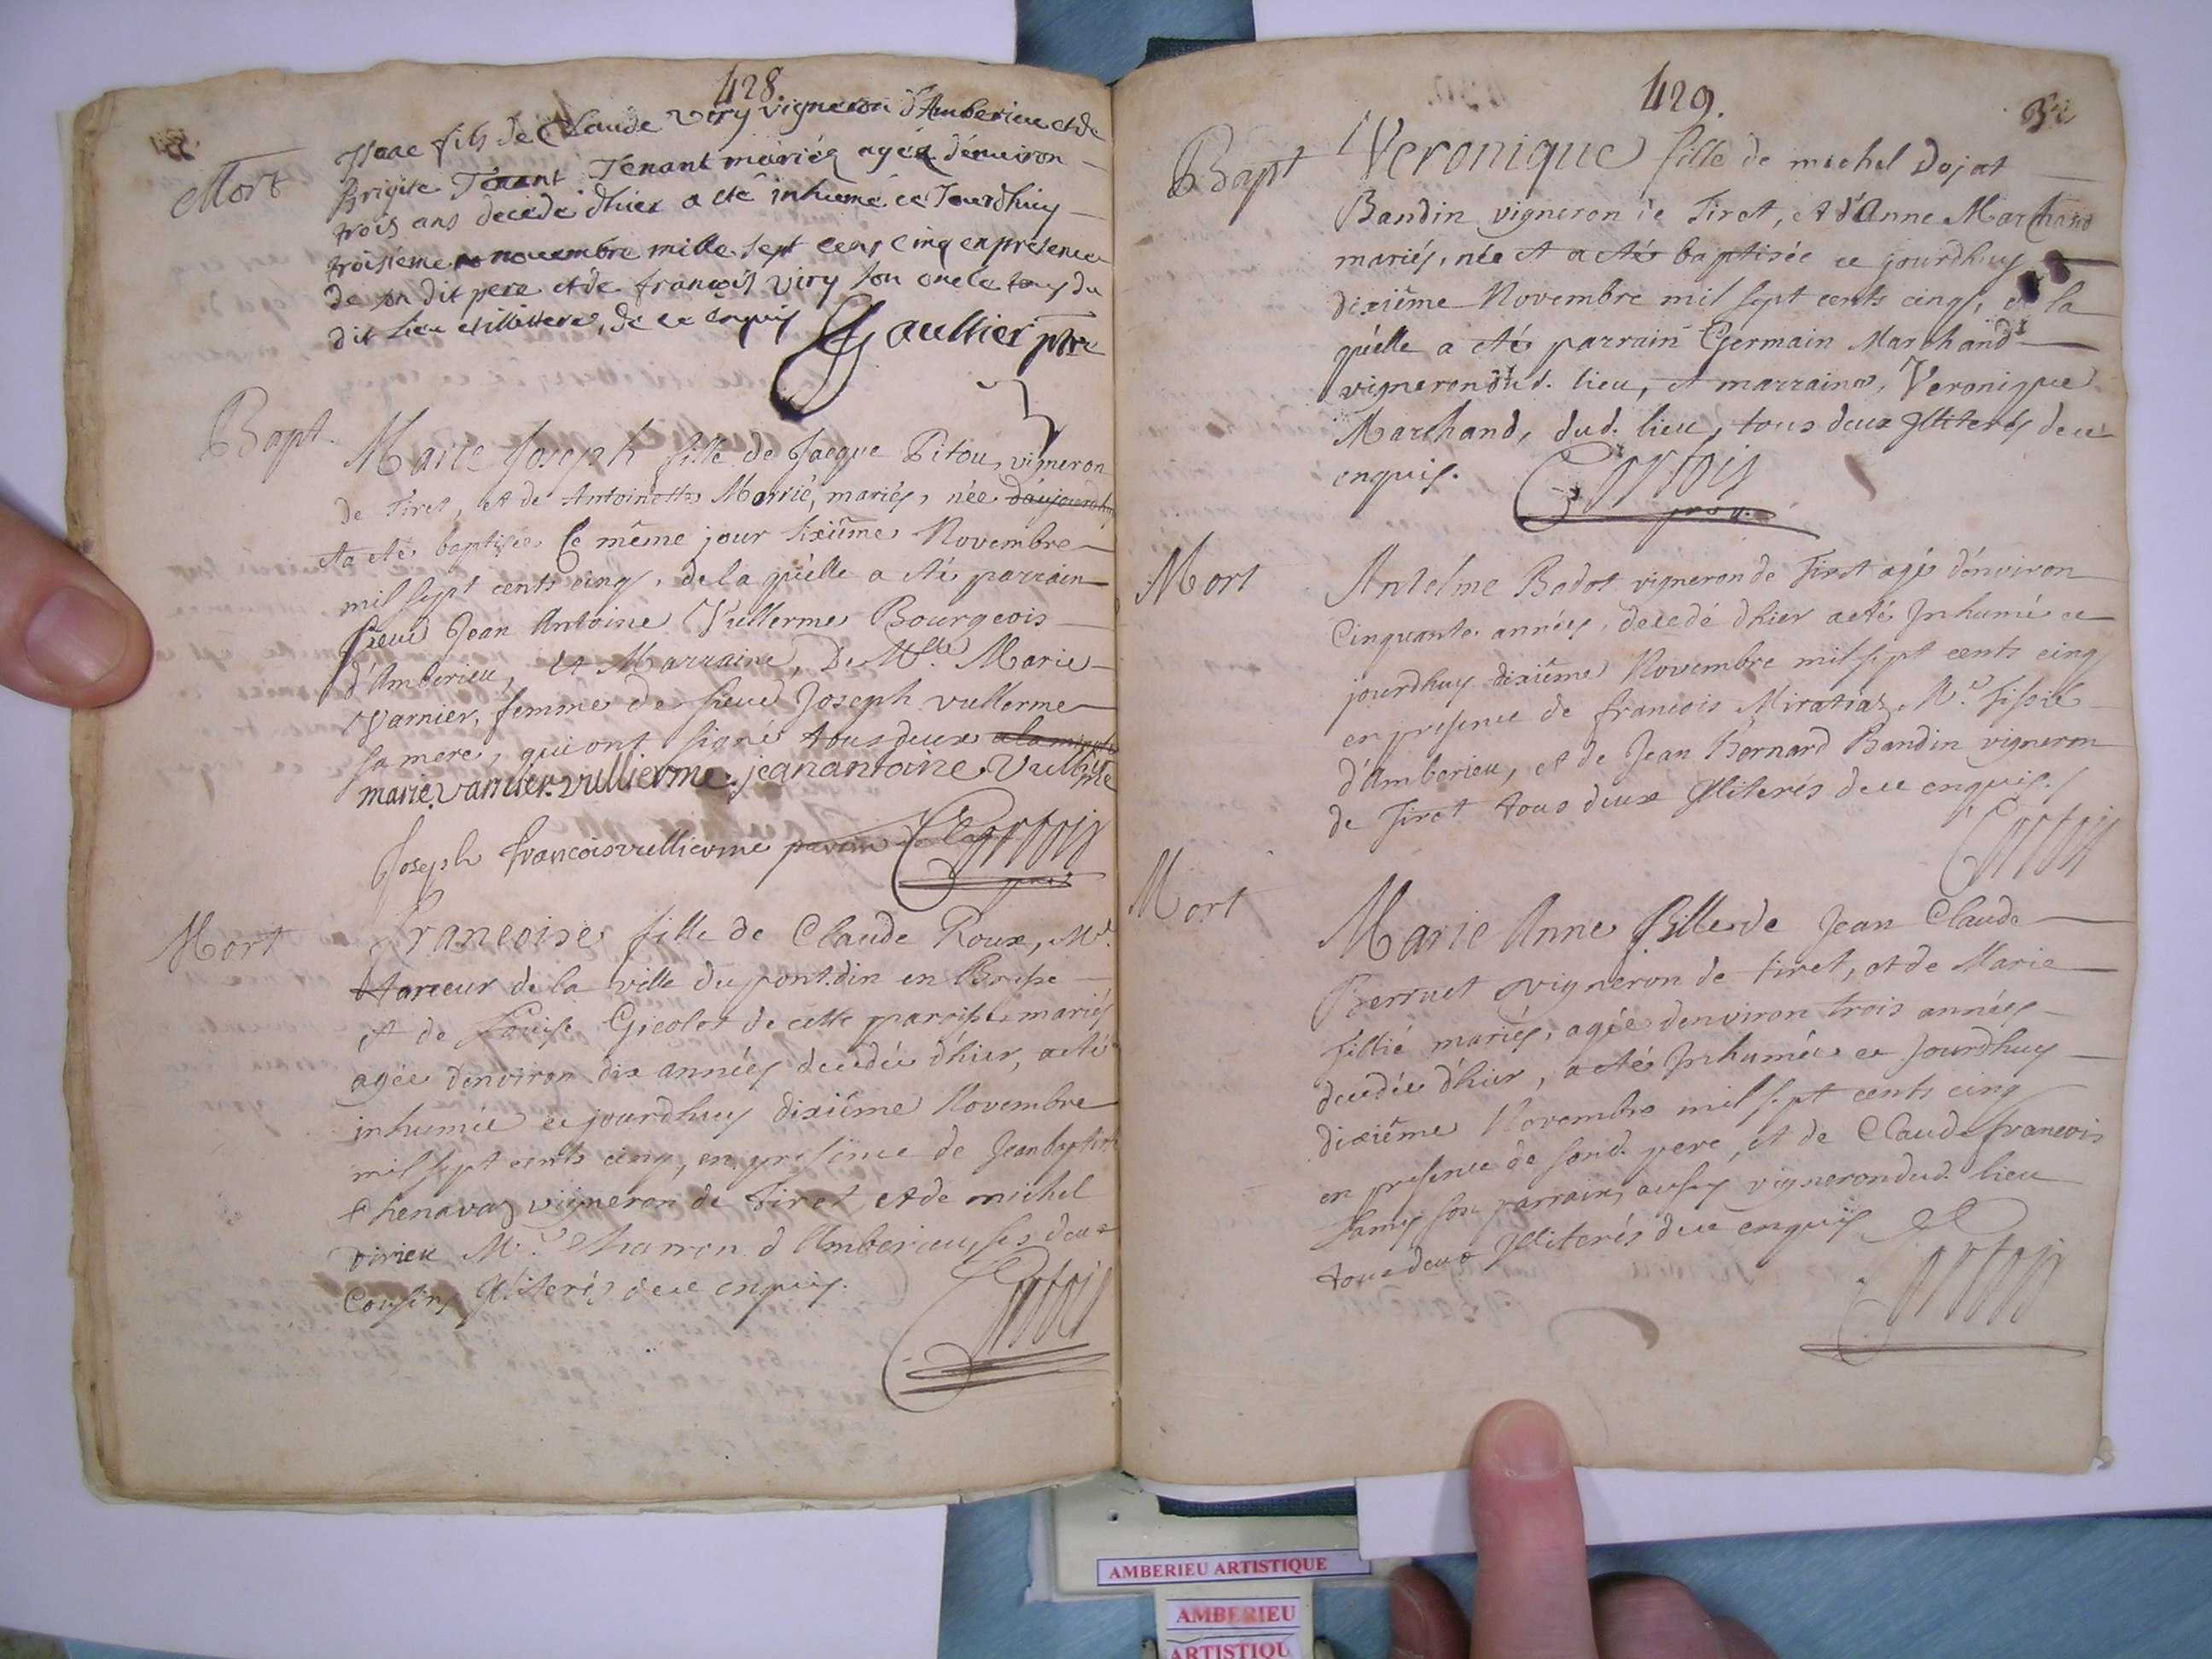 428
Mort
Isaac fils de Claude Viry vigneron d'Amberieu et de
Brigite Tenant mariés agéz d'enuiron
trois ans decedé dhier a eté inhumé ce Jourdhuy
troisiéme nouembre mille sept cens cinq en présence
de son dit pere et de françois viry son oncle tous du
dit lieu et illitteres, de ce enquis Gaultier ptre
Bapt
Marie Joseph fille de Jacque Pitou, vigneron
de Tiret, et de Antoinette Marrié, mariés, née d'aujourdhuy
et a eté baptisée Ce même jour sixiême Novembre
mil sept cents cinq, de la quêlle a eté parrain
sieur Jean Antoine Vullerme Bourgeois
d'Amberieu, et Marraine, De Mlle Marie
Varnier, femme de sieur Joseph vullerme
sa mere, qui ont signé tous deux a la minute
marie varnier vullierme jean antoine Vullierme
Joseph francois vullierme Cortois
Mort
Francoise fille de Claude Roux, Me
de la ville du pontdin en Bresse
et de Louise Gicolet de cette paroisse mariés
agée denviron dix années decedée d'hier, a eté
inhumée ce jourdhuy dixiême Novembre
mil sept cents cinq, en presence de Jean baptiste
Chenavaz vigneron de Tiret, et de michel
virieu Me Charron d'Amberieu, ses deux
Cousins Illiterés de ce enquis.
Cortois
429.
Bapt
Veronique fille de michel Dojat
Bandin vigneron de Tiret, et d'Anne Marchand
mariés, née et a eté baptisée ce jourdhuy
dixiême Novembre mil sept cents cinq, de la
quêlle a eté parrain Germain Marchand
vigneron dud. lieu, et marraine, Veronique
Marchand, dud. lieu, tous deux Illiterés de ce
enquis. Cortois
Mort
Antelme Bodot vigneron de Tiret agé d'environ
Cinquante années, decedé dhier a eté Inhumé ce
jourdhuy dixiême Novembre mil sept cents cinq
en presence de francois Miratiaz Me Tissie
d'Amberieu, et de Jean Bernard Bandin vigneron
de Tiret tous deux Illiterés de ce enquis.
Cortois
Mort
Marie Anne fille de Jean Claude
Berruet vigneron de tiret, et de Marie
Tillié mariés, agée denviron trois années
decedée d'hier, a eté Inhumée ce Jourdhuy
dixiême Novembre mil sept cents cinq
en presence de sond. pere, et de Claude francois
Lamy son parrain, aussy vigneron dud. lieu
tous deux Illiterés de ce enquis
Cortois
AMBERIEU ARTISTIQUE
AMBERIEU
ARTISTIQU